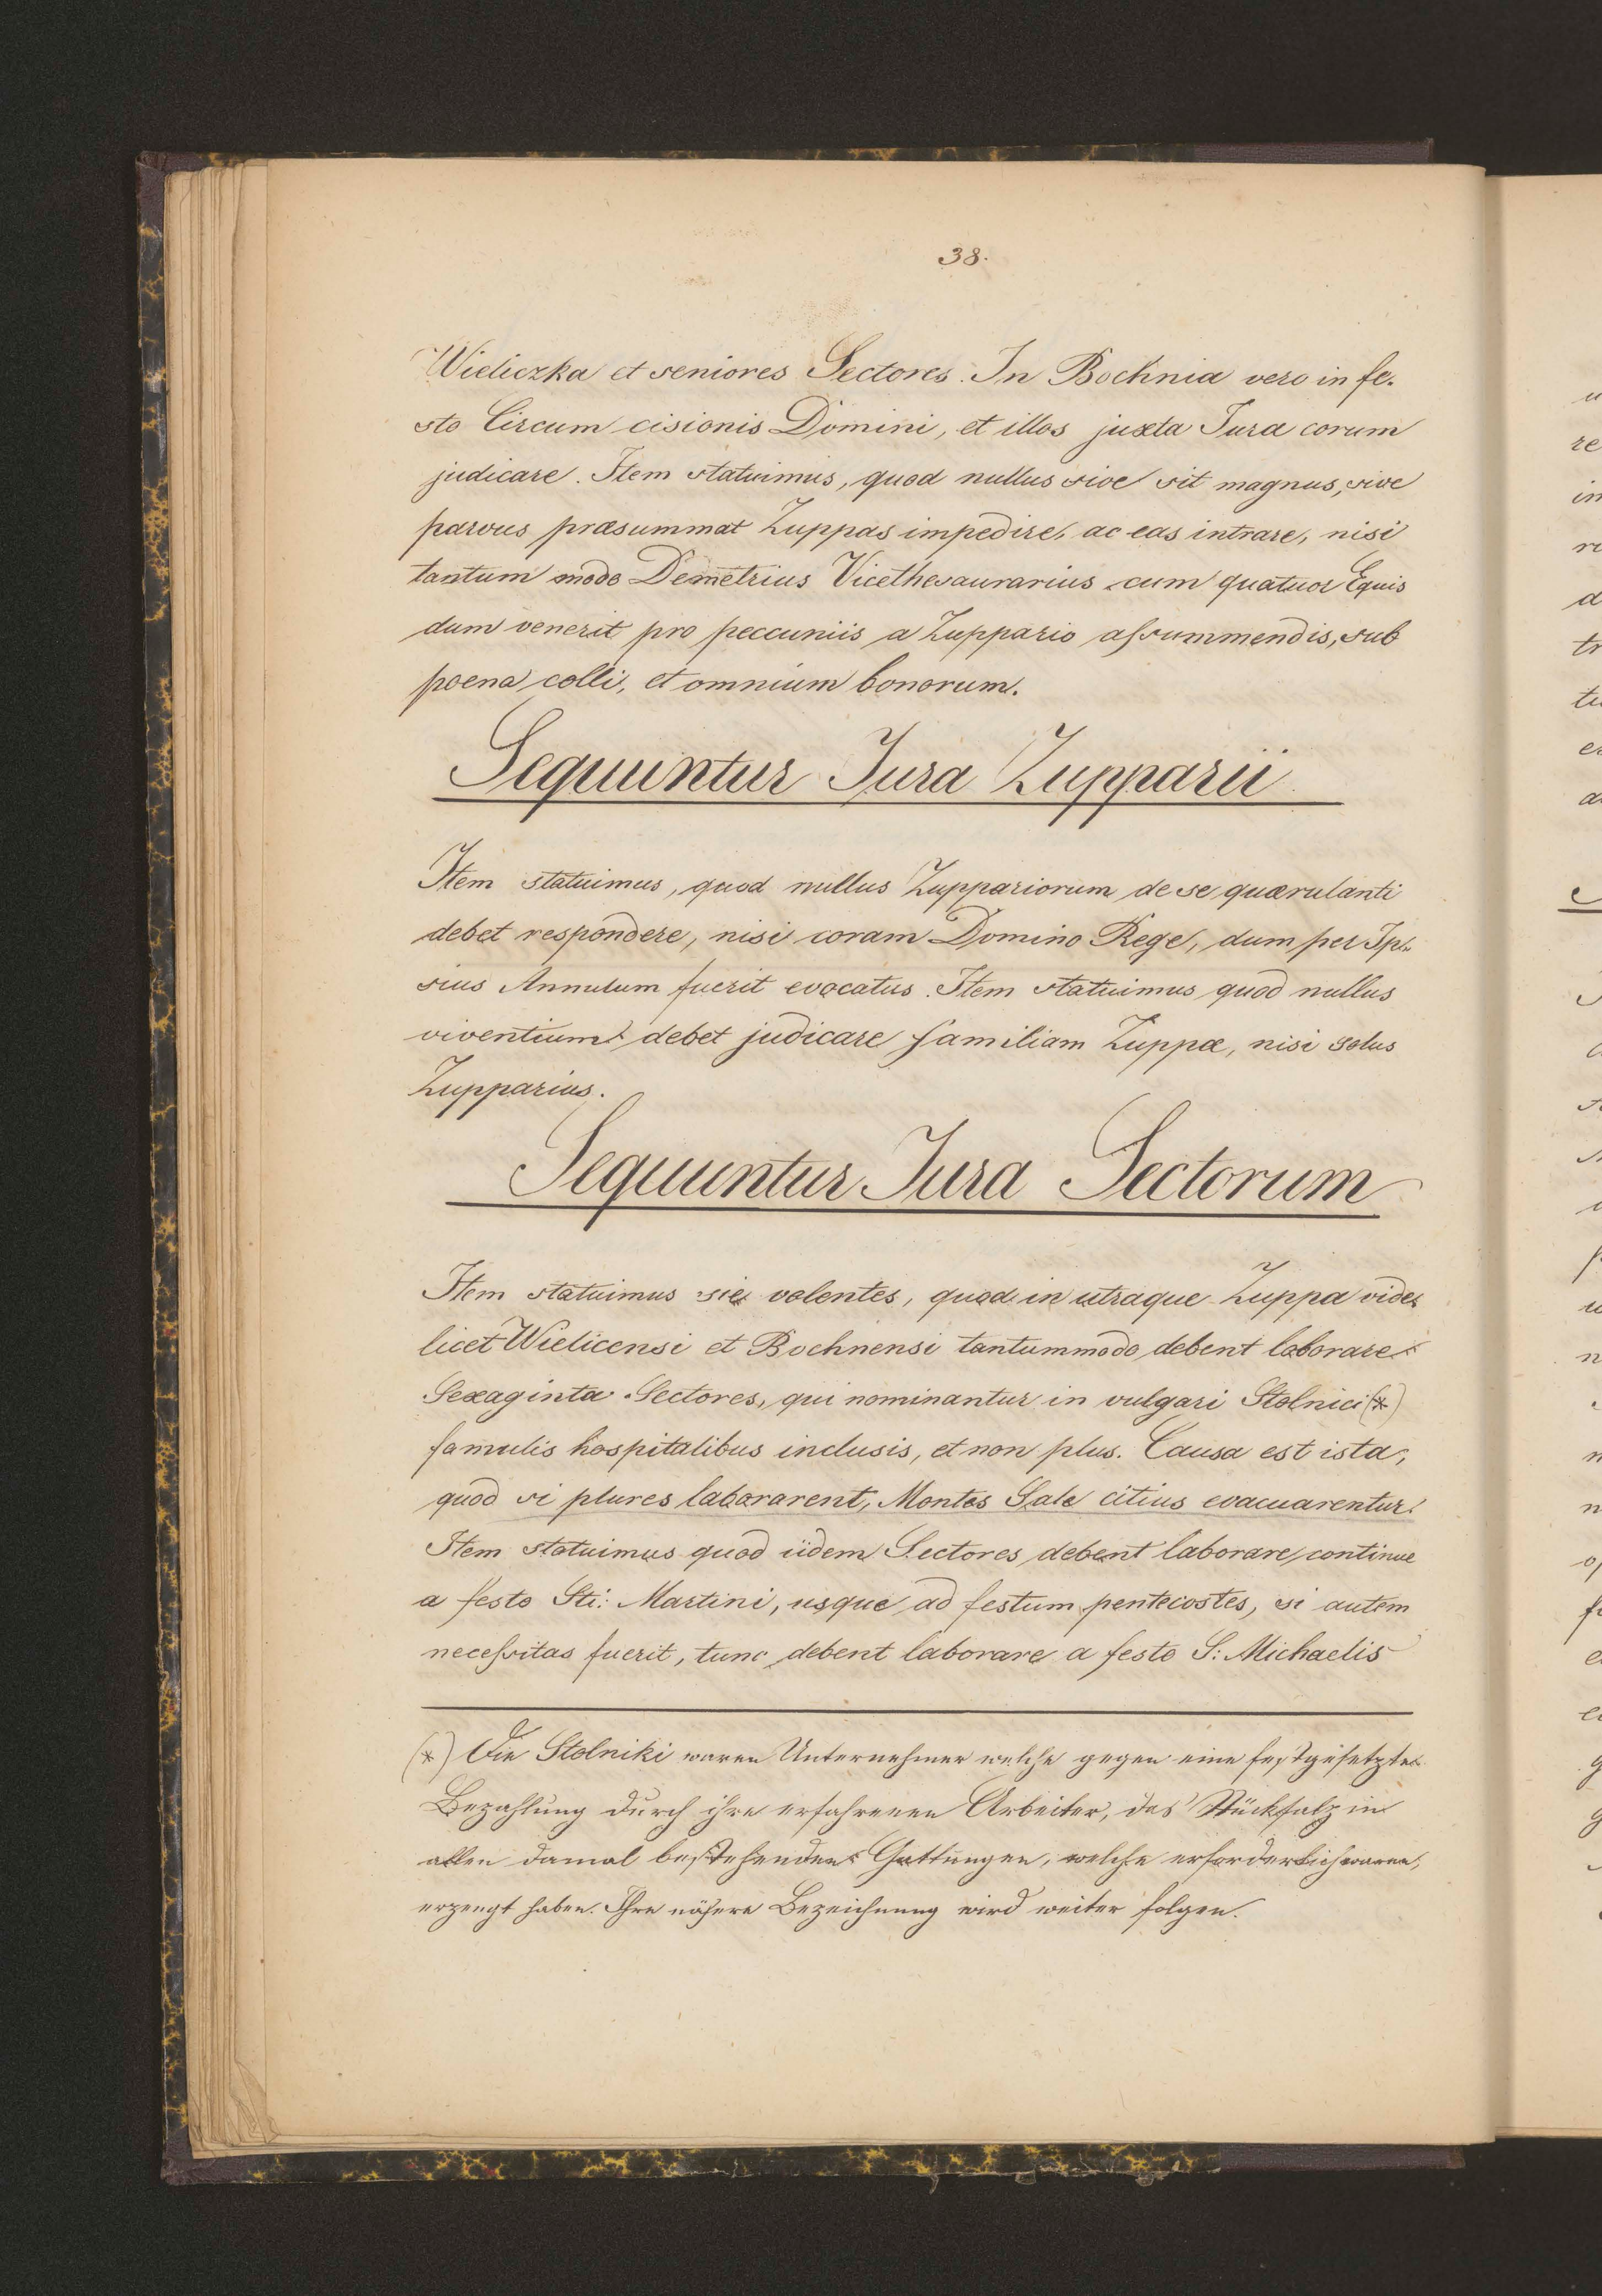 38.
Wieliczka et seniores Sectores. In Bochnia vero in fe-
sto Circum cisionis Domini, et illos juxta Jura eorum
judicare. Item statuimus, quod nullus sive sit magnus, sive
parvus præsummat Zuppas impedire, ac eas intrare, nisi
tantum modo Demetrius Vicethesaurarius cum quatuor Equis
dum venerit pro peccuniis a Zuppario assummendis, sub
poena colli, et omnium bonorum.
Sequuntur Jura Zupparii
Item statuimus, quod nullus Zuppariorum de se quærulanti
debet respondere, nisi coram Domino Rege, dum per Ip-
sius Annulum fuerit evocatus. Item statuimus quod nullus
viventium debet judicare familiam Zuppæ, nisi solus
Zupparius.
Sequuntur Jura Sectorum
Item statuimus sic volentes, quod in utraque Zuppa vide-
licet Wielicensi et Bochnensi tantummodo debent laborare
Sexaginta Sectores, qui nominantur in vulgari Stolnici (*)
famulis hospitalibus inclusis, et non plus. Causa est ista,
quod si plures laborarent, Montes Sale citius evacuarentur.
Item statuimus quod iidem Sectores debent laborare continue
a festo Sti: Martini, usque ad festum pentecostes, si autem
necessitas fuerit, tunc debent laborare a festo S: Michaelis
(*) Die Stolniki waren Unternehmer welche gegen eine festgesetzte
Bezahlung durch ihre erfahrenen Arbeiter, das Stücksalz in
allen damal bestehenden Gattungen, welche erforderlich waren,
erzeugt haben. Ihre nähere Bezeichnung wird weiter folgen.